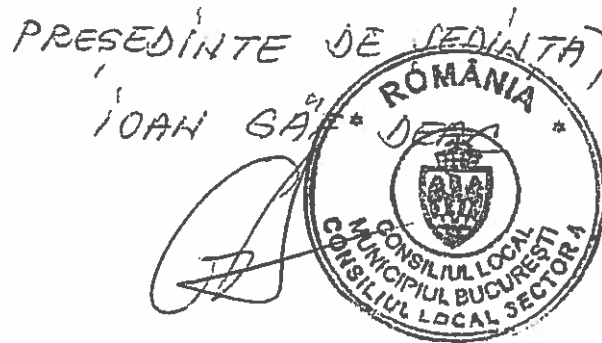 PREȘEDINTE DE ȘEDINȚĂ
IOAN GÂF DEAC
* ROMÂNIA *
CONSILIUL LOCAL
MUNICIPIUL BUCUREȘTI
CONSILIUL LOCAL SECTOR